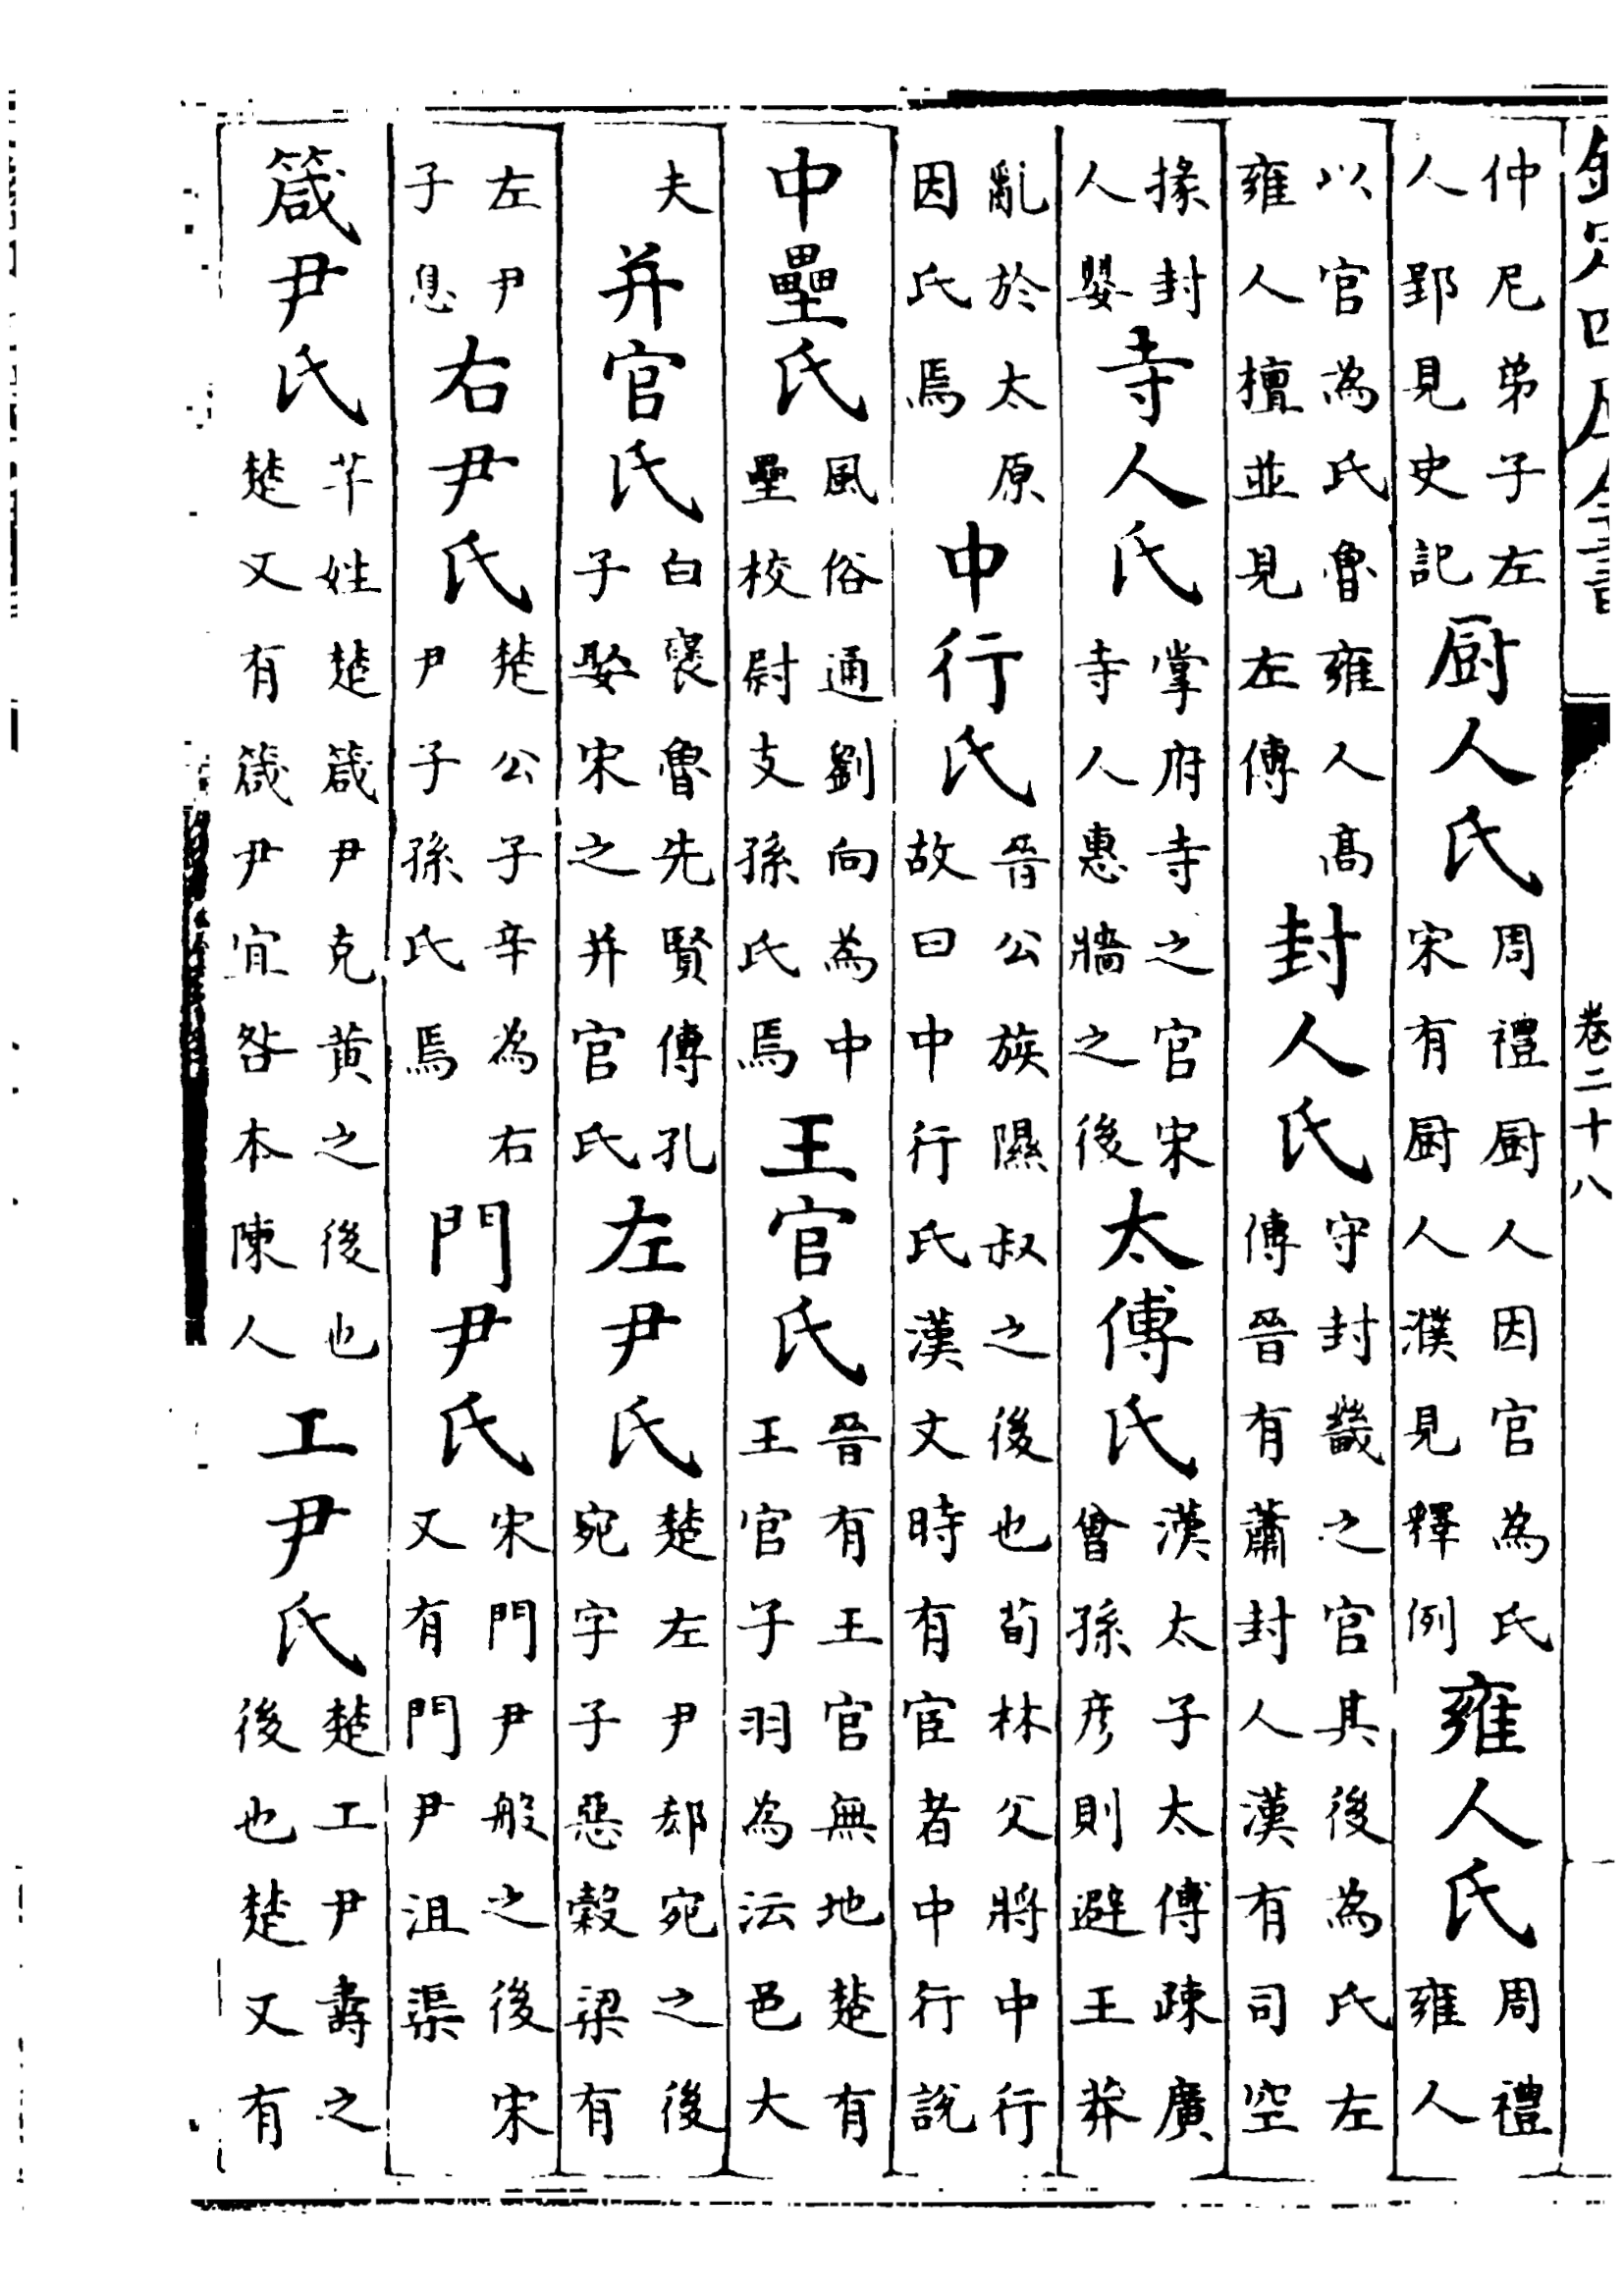 欽定四庫全書 卷二十八
仲尼弟子左人郢見史記 厨人氏 周禮厨人因官為氏宋有厨人濮見釋例 雍人氏 周禮雍人
以官為氏魯雍人高雍人檀並見左傳 封人氏 守封畿之官其後為氏左傳晉有蕭封人漢有司空
掾封人嬰 寺人氏 掌府寺之官宋寺人惠牆之後 太傅氏 漢太子太傅疎廣曾孫彦則避王莽
亂於太原因氏焉 中行氏 晉公族隰叔之後也荀林父將中行故曰中行氏漢文時有宦者中行說
中壘氏 風俗通劉向為中壘校尉支孫氏焉 王官氏 晉有王官無地楚有王官子羽為沄邑大
夫 并官氏 白褒魯先賢傳孔子娶宋之并官氏 左尹氏 楚左尹郄宛之後宛字子惡榖梁有
左尹子息 右尹氏 楚公子辛為右尹子孫氏焉 門尹氏 宋門尹般之後宋又有門尹沮渠
箴尹氏 芊姓楚箴尹克黄之後也楚又有箴尹宜咎本陳人 工尹氏 楚工尹壽之後也楚又有